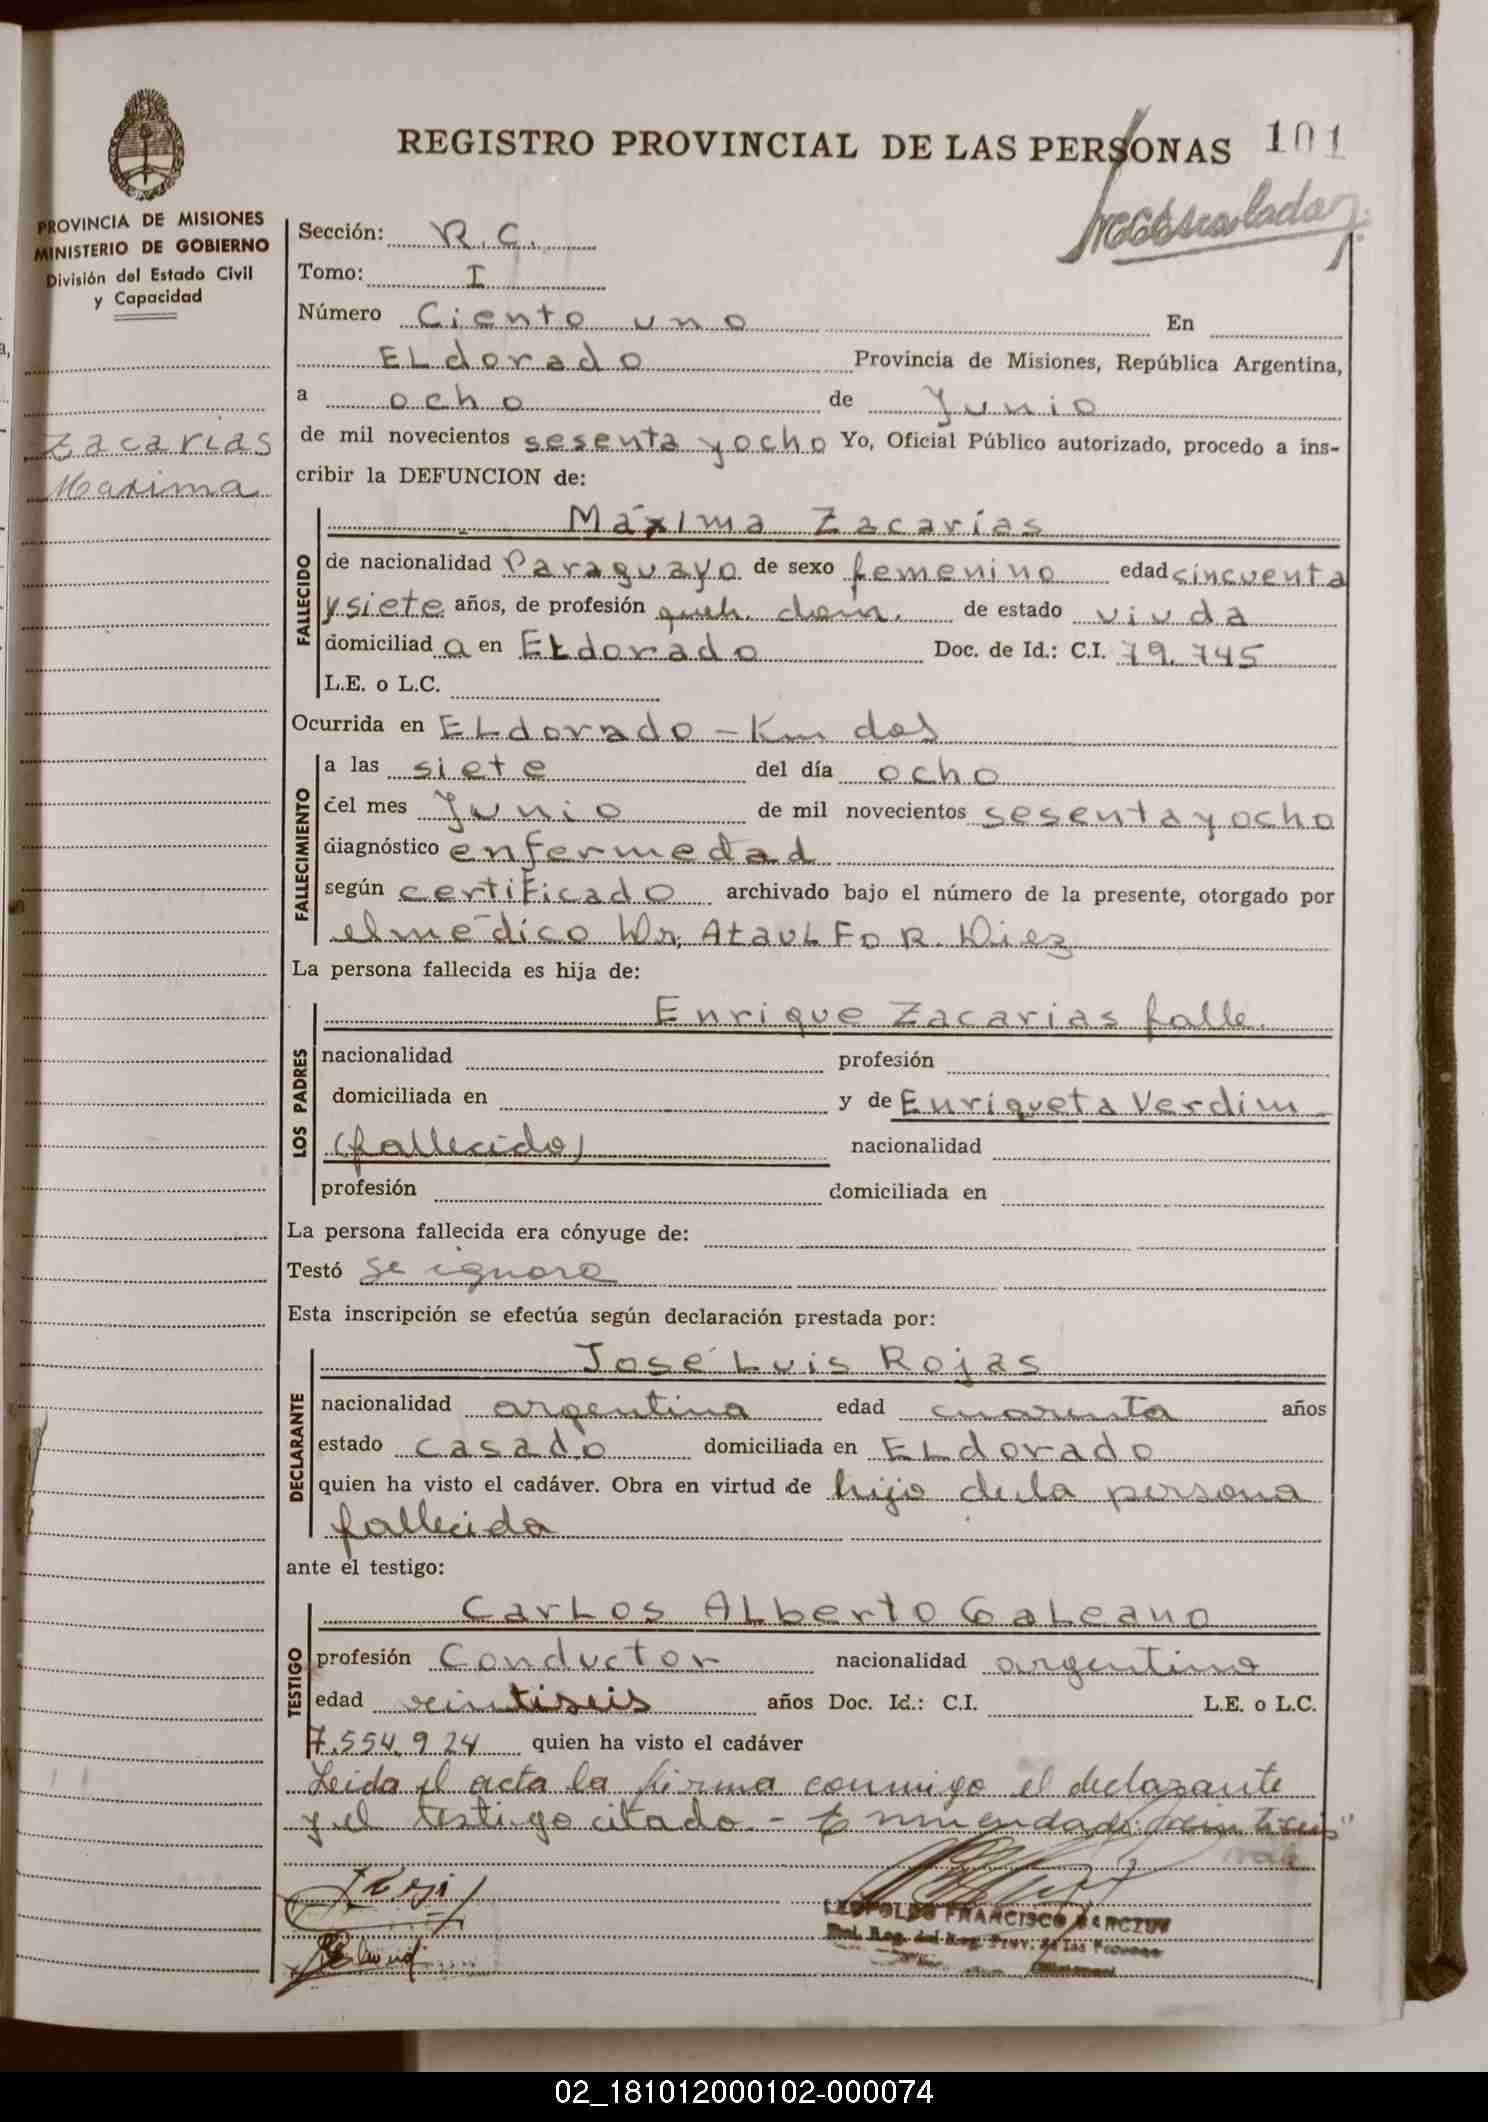 REGISTRO PROVINCIAL DE LAS PERSONAS 101
PROVINCIA DE MISIONES
MINISTERIO DE GOBIERNO
División del Estado Civil
y Capacidad
Zacarias
Maxima
Sección: R.C.
Tomo: I
Número Ciento uno En
ELdorado Provincia de Misiones, República Argentina,
a ocho de Junio
de mil novecientos sesenta y ocho Yo, Oficial Público autorizado, procedo a ins-
cribir la DEFUNCION de:
Máxima Zacarías
FALLECIDO
de nacionalidad Paraguayo de sexo femenino edad cincuenta
y siete años, de profesión queh. dom. de estado viuda
domiciliad a en ELdorado Doc. de Id.: C.I. 79.745
L.E. o L.C.
Ocurrida en ELdorado - Km dos
FALLECIMIENTO
a las siete del día ocho
del mes Junio de mil novecientos sesenta y ocho
diagnóstico enfermedad
según certificado archivado bajo el número de la presente, otorgado por
el médico Dr. AtauLFo R. Diez
La persona fallecida es hija de:
LOS PADRES
Enrique Zacarias falle.
nacionalidad profesión
domiciliada en y de Enriqueta Verdim
(fallecido) nacionalidad
profesión domiciliada en
La persona fallecida era cónyuge de:
Testó se ignora
Esta inscripción se efectúa según declaración prestada por:
DECLARANTE
José Luis Rojas
nacionalidad argentina edad cuarenta años
estado casado domiciliada en ELdorado
quien ha visto el cadáver. Obra en virtud de hijo de la persona
fallecida
ante el testigo:
TESTIGO
CarLos ALberto GaLeano
profesión Conductor nacionalidad argentino
edad veintiseis años Doc. Id.: C.I. L.E. o L.C.
7.554.924 quien ha visto el cadáver
Leida el acta la firma conmigo el declarante
y el testigo citado.- Enmendado: "veintiseis"
vale
LEOPOLDO FRANCISCO
02_181012000102-000074